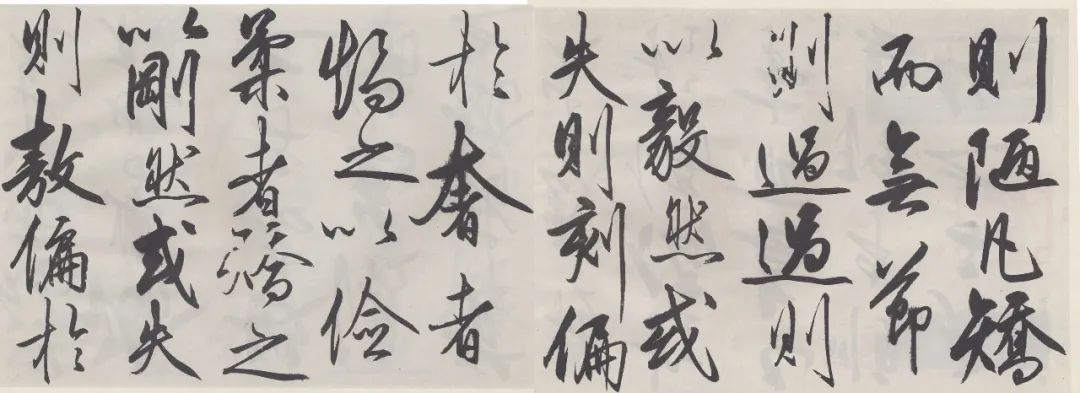 則陋凡矯
而無節
則過過則
以毅然或
失則刻偏
於奢者
矯之以儉
柔者矯之
以剛然或失
則敖偏於